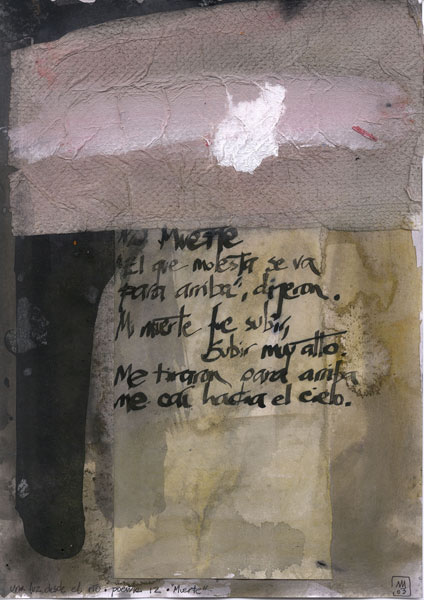 Muerte
"El que molesta se va
para arriba", dijeron.
Mi muerte fue subir,
subir muy alto.
Me tiraron para arriba
me caí hacia el cielo.
una luz desde el río • poema 12 • "Muerte"
03